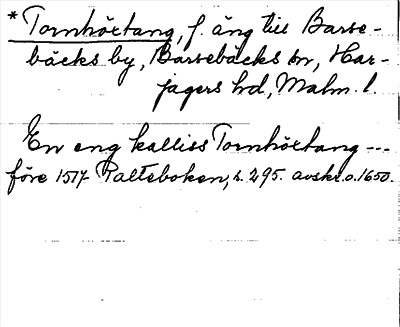 *Tornhöxtang, f. äng till Barse-
bäcks by, Barsebäcks sn, Har-
jagers hd, Malm. l.
En eng kalliss Tornhöxtang ---
före 1517 Palteboken, s. 295. avskr. o. 1650.